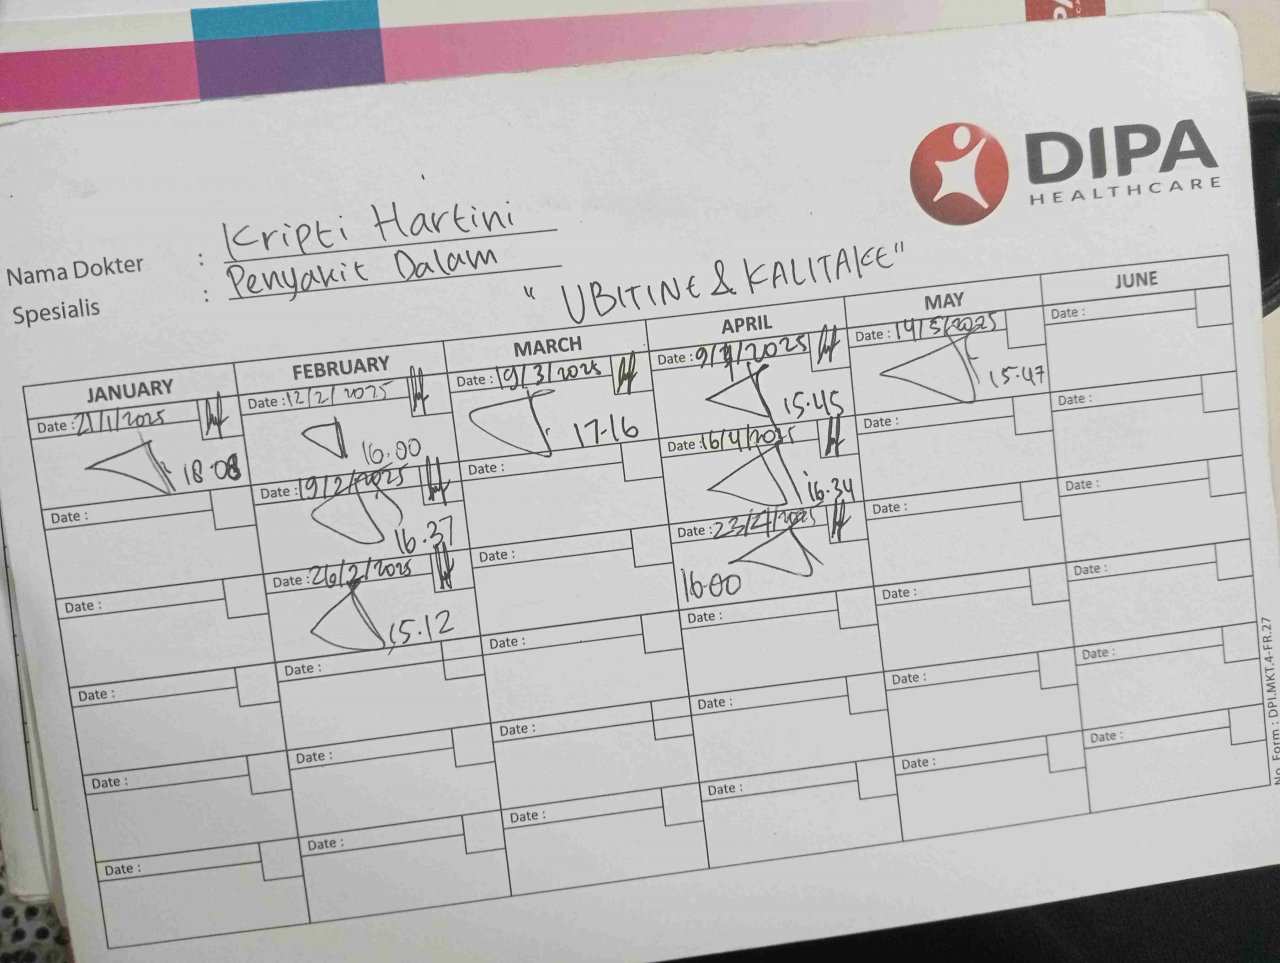 DIPA
HEALTHCARE
Nama Dokter : Kripti Hartini
Spesialis : Penyakit Dalam
"UBITINE & KALITAKE"
JANUARY FEBRUARY MARCH APRIL MAY JUNE
Date : 21/1/2025 Date : 12/2/2025 Date : 19/3/2025 Date : 9/4/2025 Date : 14/5/2025 Date :
18.08 16.00 17-16 15.45 15.47
Date : Date : 19/2/2025 Date : Date : 16/4/2025 Date : Date :
16.37 16.34
Date : Date : 26/2/2025 Date : Date : 23/4/2025 Date : Date :
15.12 16.00
Date : Date : Date : Date : Date : Date :
Date : Date : Date : Date : Date : Date :
Date : Date : Date : Date : Date : Date :
No. Form : DPI.MKT.4-FR.27